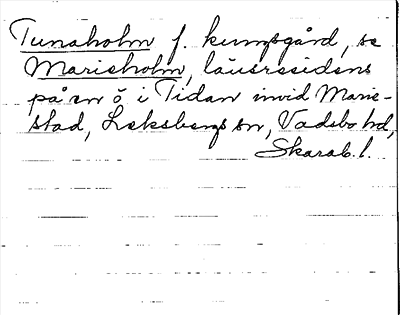 Tunaholm f. kungsgård, se
Marieholm, länsresidens
på en ö i Tidan invid Marie-
stad, Leksbergs sn, Vadsbo hd,
Skarab. l.